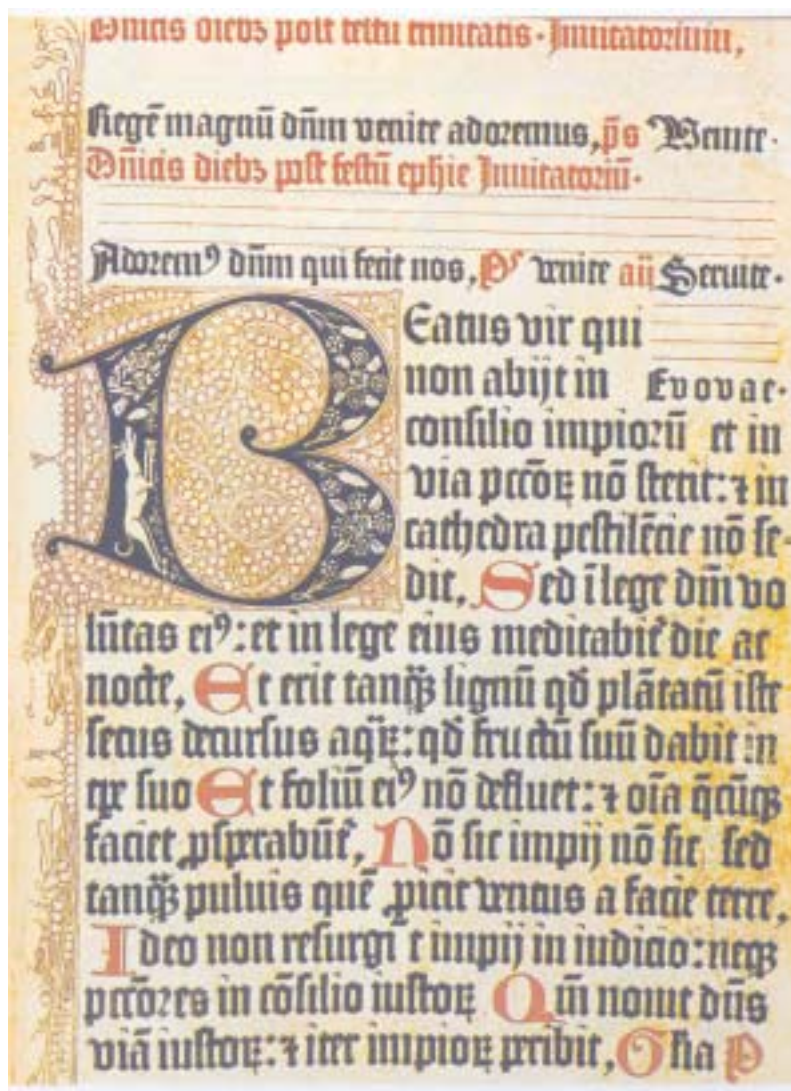 Dn̄icis diebꝫ post festū trinitatis · Inuitatorium,
Regē magnū dn̄m venite adoremus, p̄s Venite ·
Dn̄icis diebꝫ post festū ephie Inuitatoriū ·
Adoremꝰ dn̄m qui fecit nos, Ps venite añ Seruite ·
Beatus vir qui
non abijt in Evovae ·
consilio impioꝛū et in
via pccōꝝ nō stetit: ⁊ in
cathedra pestilēcie nō se-
dit, Sed ī lege dn̄i vo
lūtas eiꝰ: et in lege eius meditabit̄ die ac
nocte, Et erit tanqꝫ lignū qd̄ plātatū iste
secus decursus aqꝝ: qd̄ fructū suū dabit in
tp̄e suo Et foliū eiꝰ nō defluet: ⁊ oīa q̄cūqꝫ
faciet ꝓsperabūt̄, Nō sic impij nō sic sed
tanqꝫ puluis quē ꝓicit ventus a facie terre,
Ideo non resurgūt impij in iudicio: neqꝫ
pccōꝛes in cōsilio iustoꝝ Qm̄ nouit dn̄s
viā iustoꝝ: ⁊ iter impioꝝ peribit, Glia P